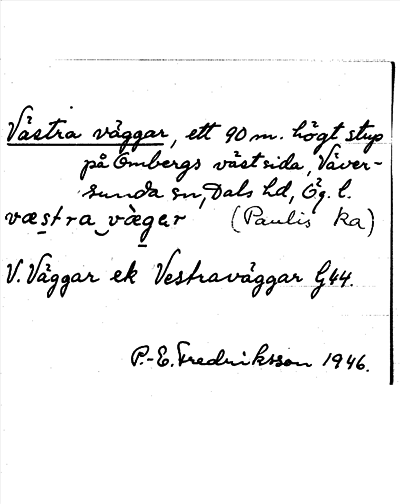 Västra väggar, ett 90 m. högt stup
på Ombergs västsida, Väver-
sunda sn, Dals hd, Ög. l.
væstra vàgar (Paulis ka)
V. Väggar ek Vestraväggar G44.
P.-E. Fredriksson 1946.